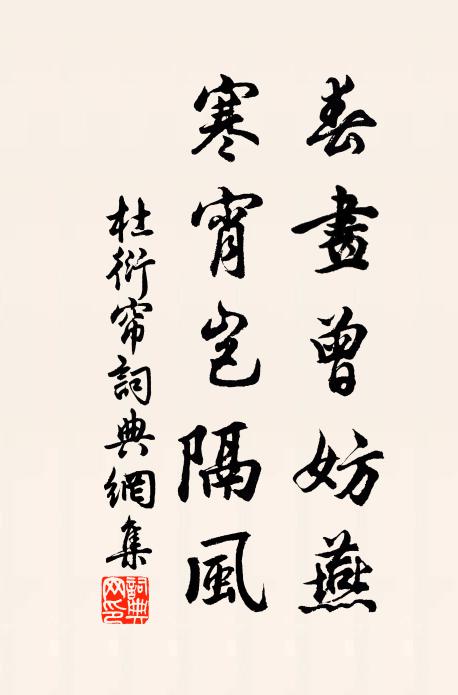 春晝曾妨燕
寒宵豈隔風
杜衍帘詞典網集
詞典網印